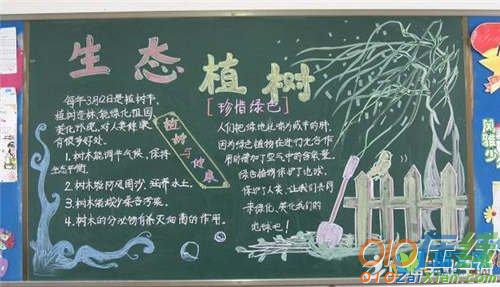 生态植树
[珍惜绿色]
每年3月12日是植树节,
植树造林,能绿化祖国
美化环境,对人类健康
有很多好处。
1. 树木能调节气候,保持
生态平衡。
2. 树木能防风固沙,涵养水土。
3. 树木能减少噪音污染。
4. 树木的分泌物有杀灭细菌的作用。
植树与健康
人们把绿地比喻为城市的肺,
因为绿色植物在进行光合作
用时增加了空气中的含氧量,
绿色植物保护了地球,
保护了人类,让我们共同
来绿化、美化我们的
地球吧!
910在线
910zaixian.com